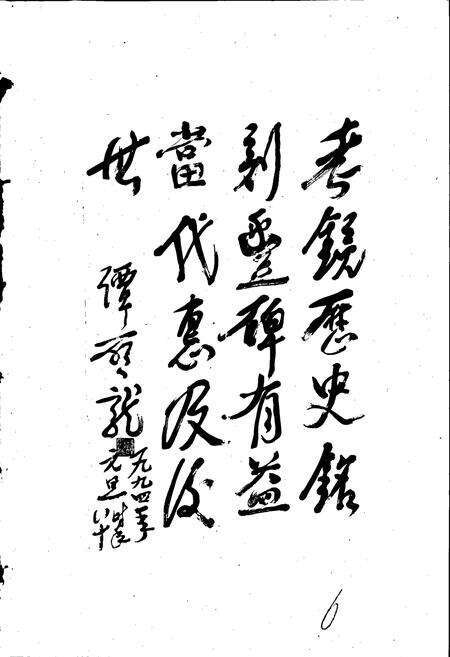 考鏡歷史鎸
刻豊碑有益
當代惠及後
世
譚啓龍
一九九四年
元旦時年八十
6